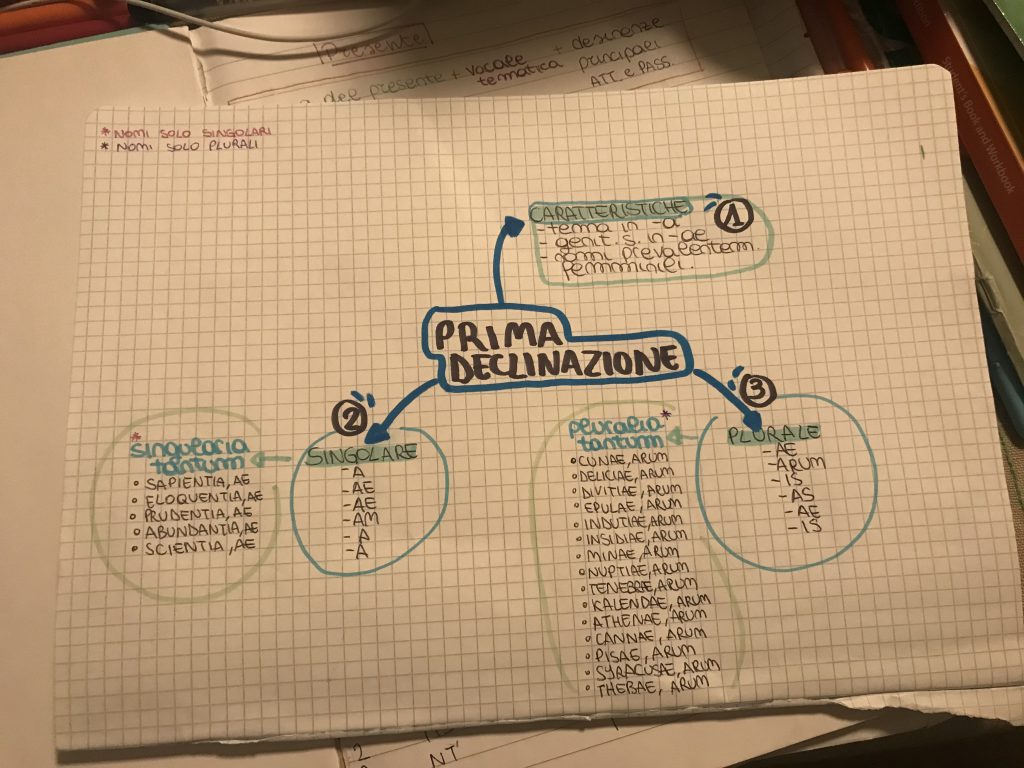 Presente
del presente + vocale tematica + desinenze principali
ATT. e PASS.
Student's Book and Workbook
* NOMI SOLO SINGOLARI
* NOMI SOLO PLURALI
CARATTERISTICHE
1
- tema in -a
- genit. s. in -ae
- nomi prevalentem.
femminili.
PRIMA
DECLINAZIONE
2
SINGOLARE
-A
-AE
-AE
-AM
-A
-A
*
singularia
tantum
• SAPIENTIA, AE
• ELOQUENTIA, AE
• PRUDENTIA, AE
• ABUNDANTIA, AE
• SCIENTIA, AE
3
PLURALE
-AE
-ARUM
-IS
-AS
-AE
-IS
pluralia*
tantum
• CUNAE, ARUM
• DELICIAE, ARUM
• DIVITIAE, ARUM
• EPULAE, ARUM
• INDUTIAE, ARUM
• INSIDIAE, ARUM
• MINAE, ARUM
• NUPTIAE, ARUM
• TENEBRAE, ARUM
• KALENDAE, ARUM
• ATHENAE, ARUM
• CANNAE, ARUM
• PISAE, ARUM
• SYRACUSAE, ARUM
• THEBAE, ARUM
2
NT'